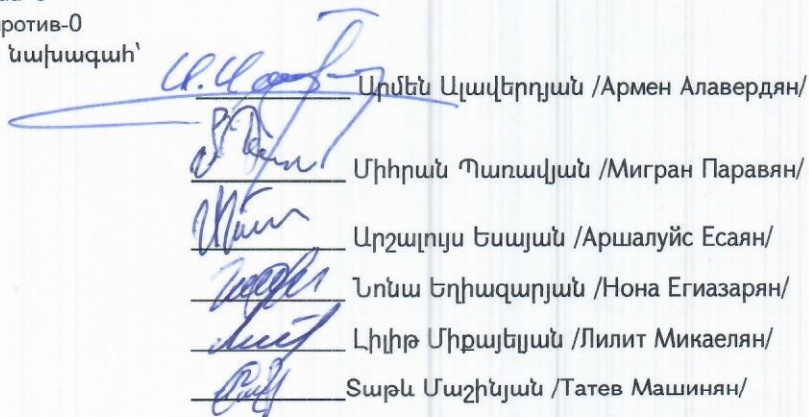 против-0
նախագահ՝
Արմեն Ալավերդյան /Армен Алавердян/
Միհրան Պառավյան /Мигран Паравян/
Արշալույս Եսայան /Аршалуйс Есаян/
Նոնա Եղիազարյան /Нона Егиазарян/
Լիլիթ Միքայելյան /Лилит Микаелян/
Տաթև Մաշինյան /Татев Машинян/